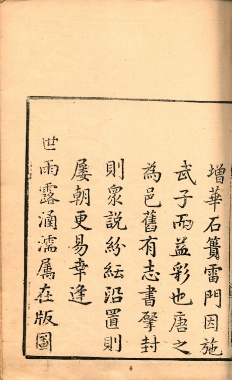 增華石簣雷門因施
武子而益彩也唐之
為邑舊有志書肇封
則衆說紛紜沿置則
屢朝更易幸逢
世雨露涵濡屬在版圖
6